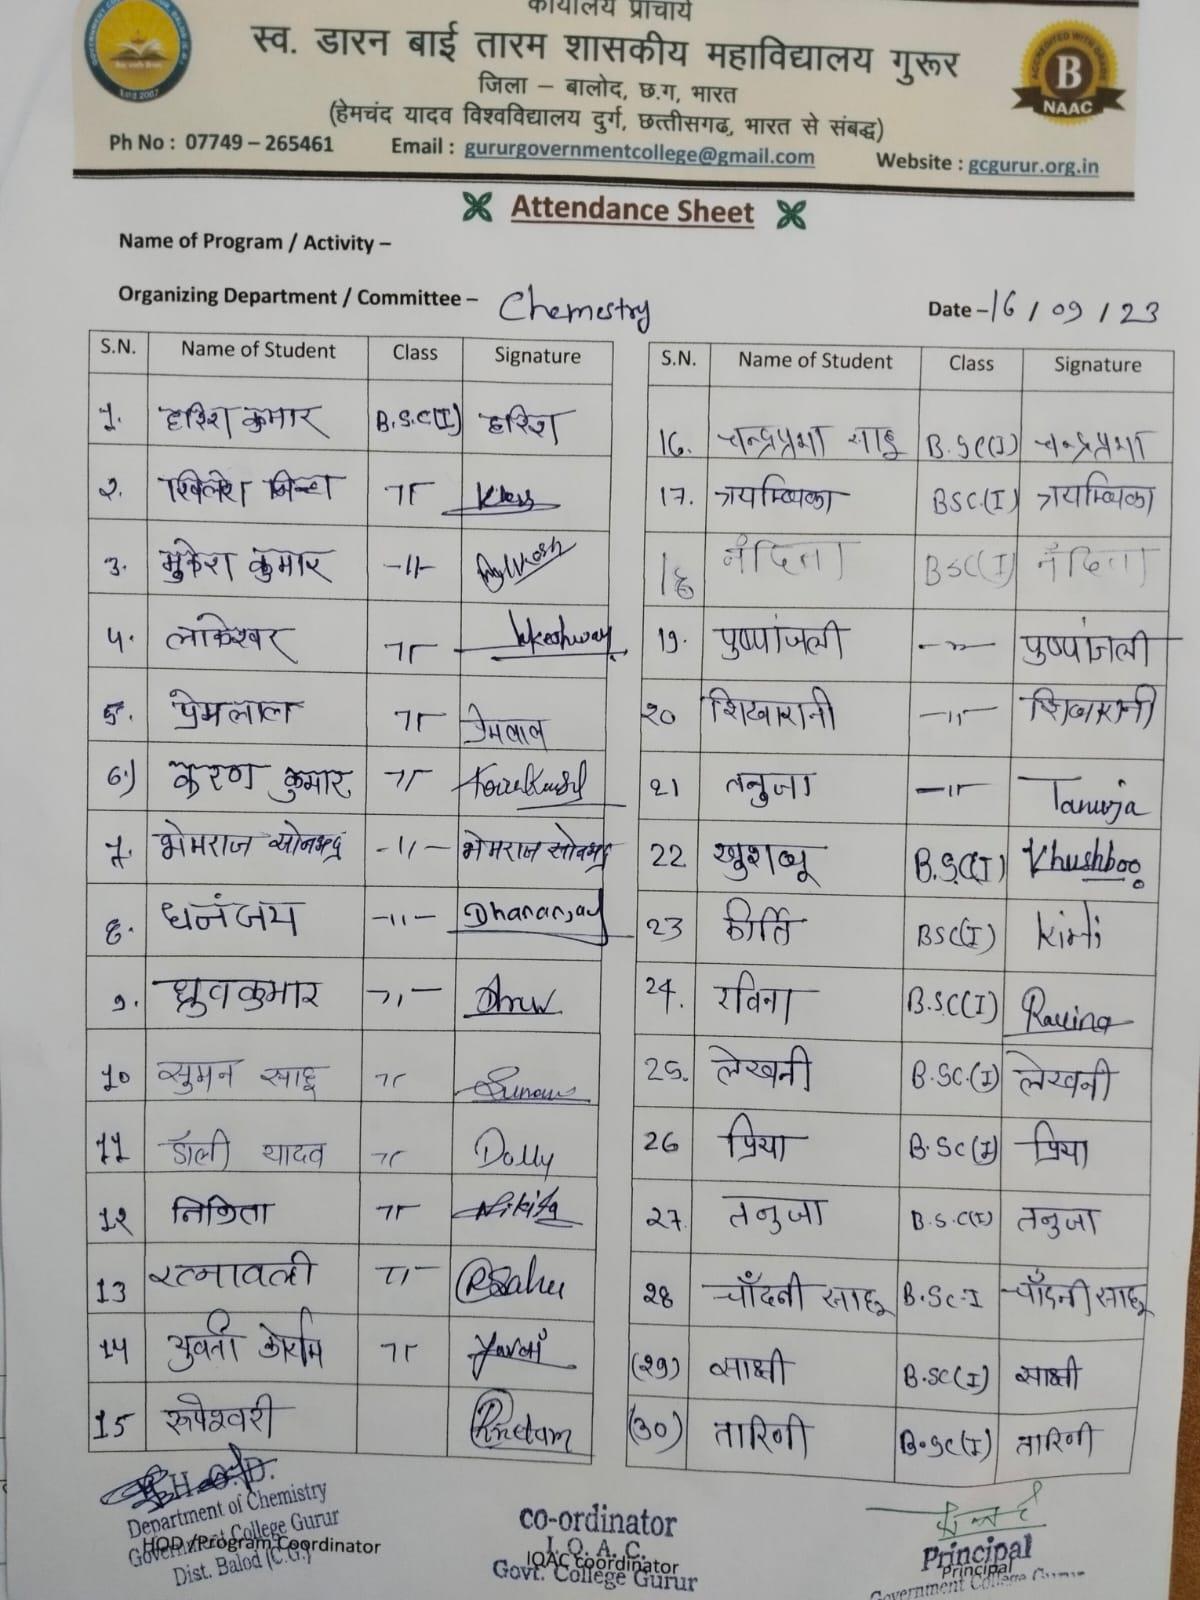 कार्यालय प्राचार्य
स्व. डारन बाई तारम शासकीय महाविद्यालय गुरूर
जिला – बालोद, छ.ग, भारत
(हेमचंद यादव विश्वविद्यालय दुर्ग, छत्तीसगढ, भारत से संबद्ध)
Ph No : 07749 – 265461 Email : gururgovernmentcollege@gmail.com Website : gcgurur.org.in
ACCREDITED WITH GRADE
B
NAAC
Attendance Sheet
Name of Program / Activity –
Organizing Department / Committee – Chemestry Date – 16 / 09 / 23
S.N. Name of Student Class Signature
1. हरिश कुमार B.S.C(I) हरिश
2. खिलेश -11-
3. मुकेश कुमार -11-
4. लाकेश्वर -11- lokeshwar
5. प्रेमलाल -11- प्रेमलाल
6) करण कुमार -11-
7. भेमराज सोनभद्र -11- भेमराज सोनभद्र
8. धनंजय -11- Dhananjay
9. ध्रुवकुमार -11- Dhruw
10 सुमन साहू -11- Suman
11 डॉली यादव -11- Dolly
12 निकिता -11- Nikita
13 रत्नावली -11- RSahu
14 युवती कोर्राम -11-
15 रूपेश्वरी
S.N. Name of Student Class Signature
16. चन्द्रप्रभा साहू B.SC(I) चन्द्रप्रभा
17. त्रयम्बिका BSC.(I) त्रयम्बिका
18 नंदिता BSC(I) नंदिता
19. पुष्पांजली -11- पुष्पांजली
20 शिखारानी -11- शिखारानी
21 तनुजा -11- Tanuja
22 खुशबू B.SC(I) Khushboo
23 कीर्ति BSC(I) Kirti
24. रविना B.S.C(I) Ravina
25. लेखनी B.SC.(I) लेखनी
26 प्रिया B.SC(I) प्रिया
27. तनुजा B.S.C(I) तनुजा
28 चाँदनी साहू B.Sc-I चाँदनी साहू
(29) साक्षी B.SC(I) साक्षी
(30) तारिणी B.SC(I) तारिणी
H.O.D.
Department of Chemistry
Government College Gurur
Dist. Balod (C.G.)
HOD /Program Coordinator
co-ordinator
I.Q.A.C.
IQAC Coordinator
Govt. College Gurur
Principal
Principal
Government College Gurur